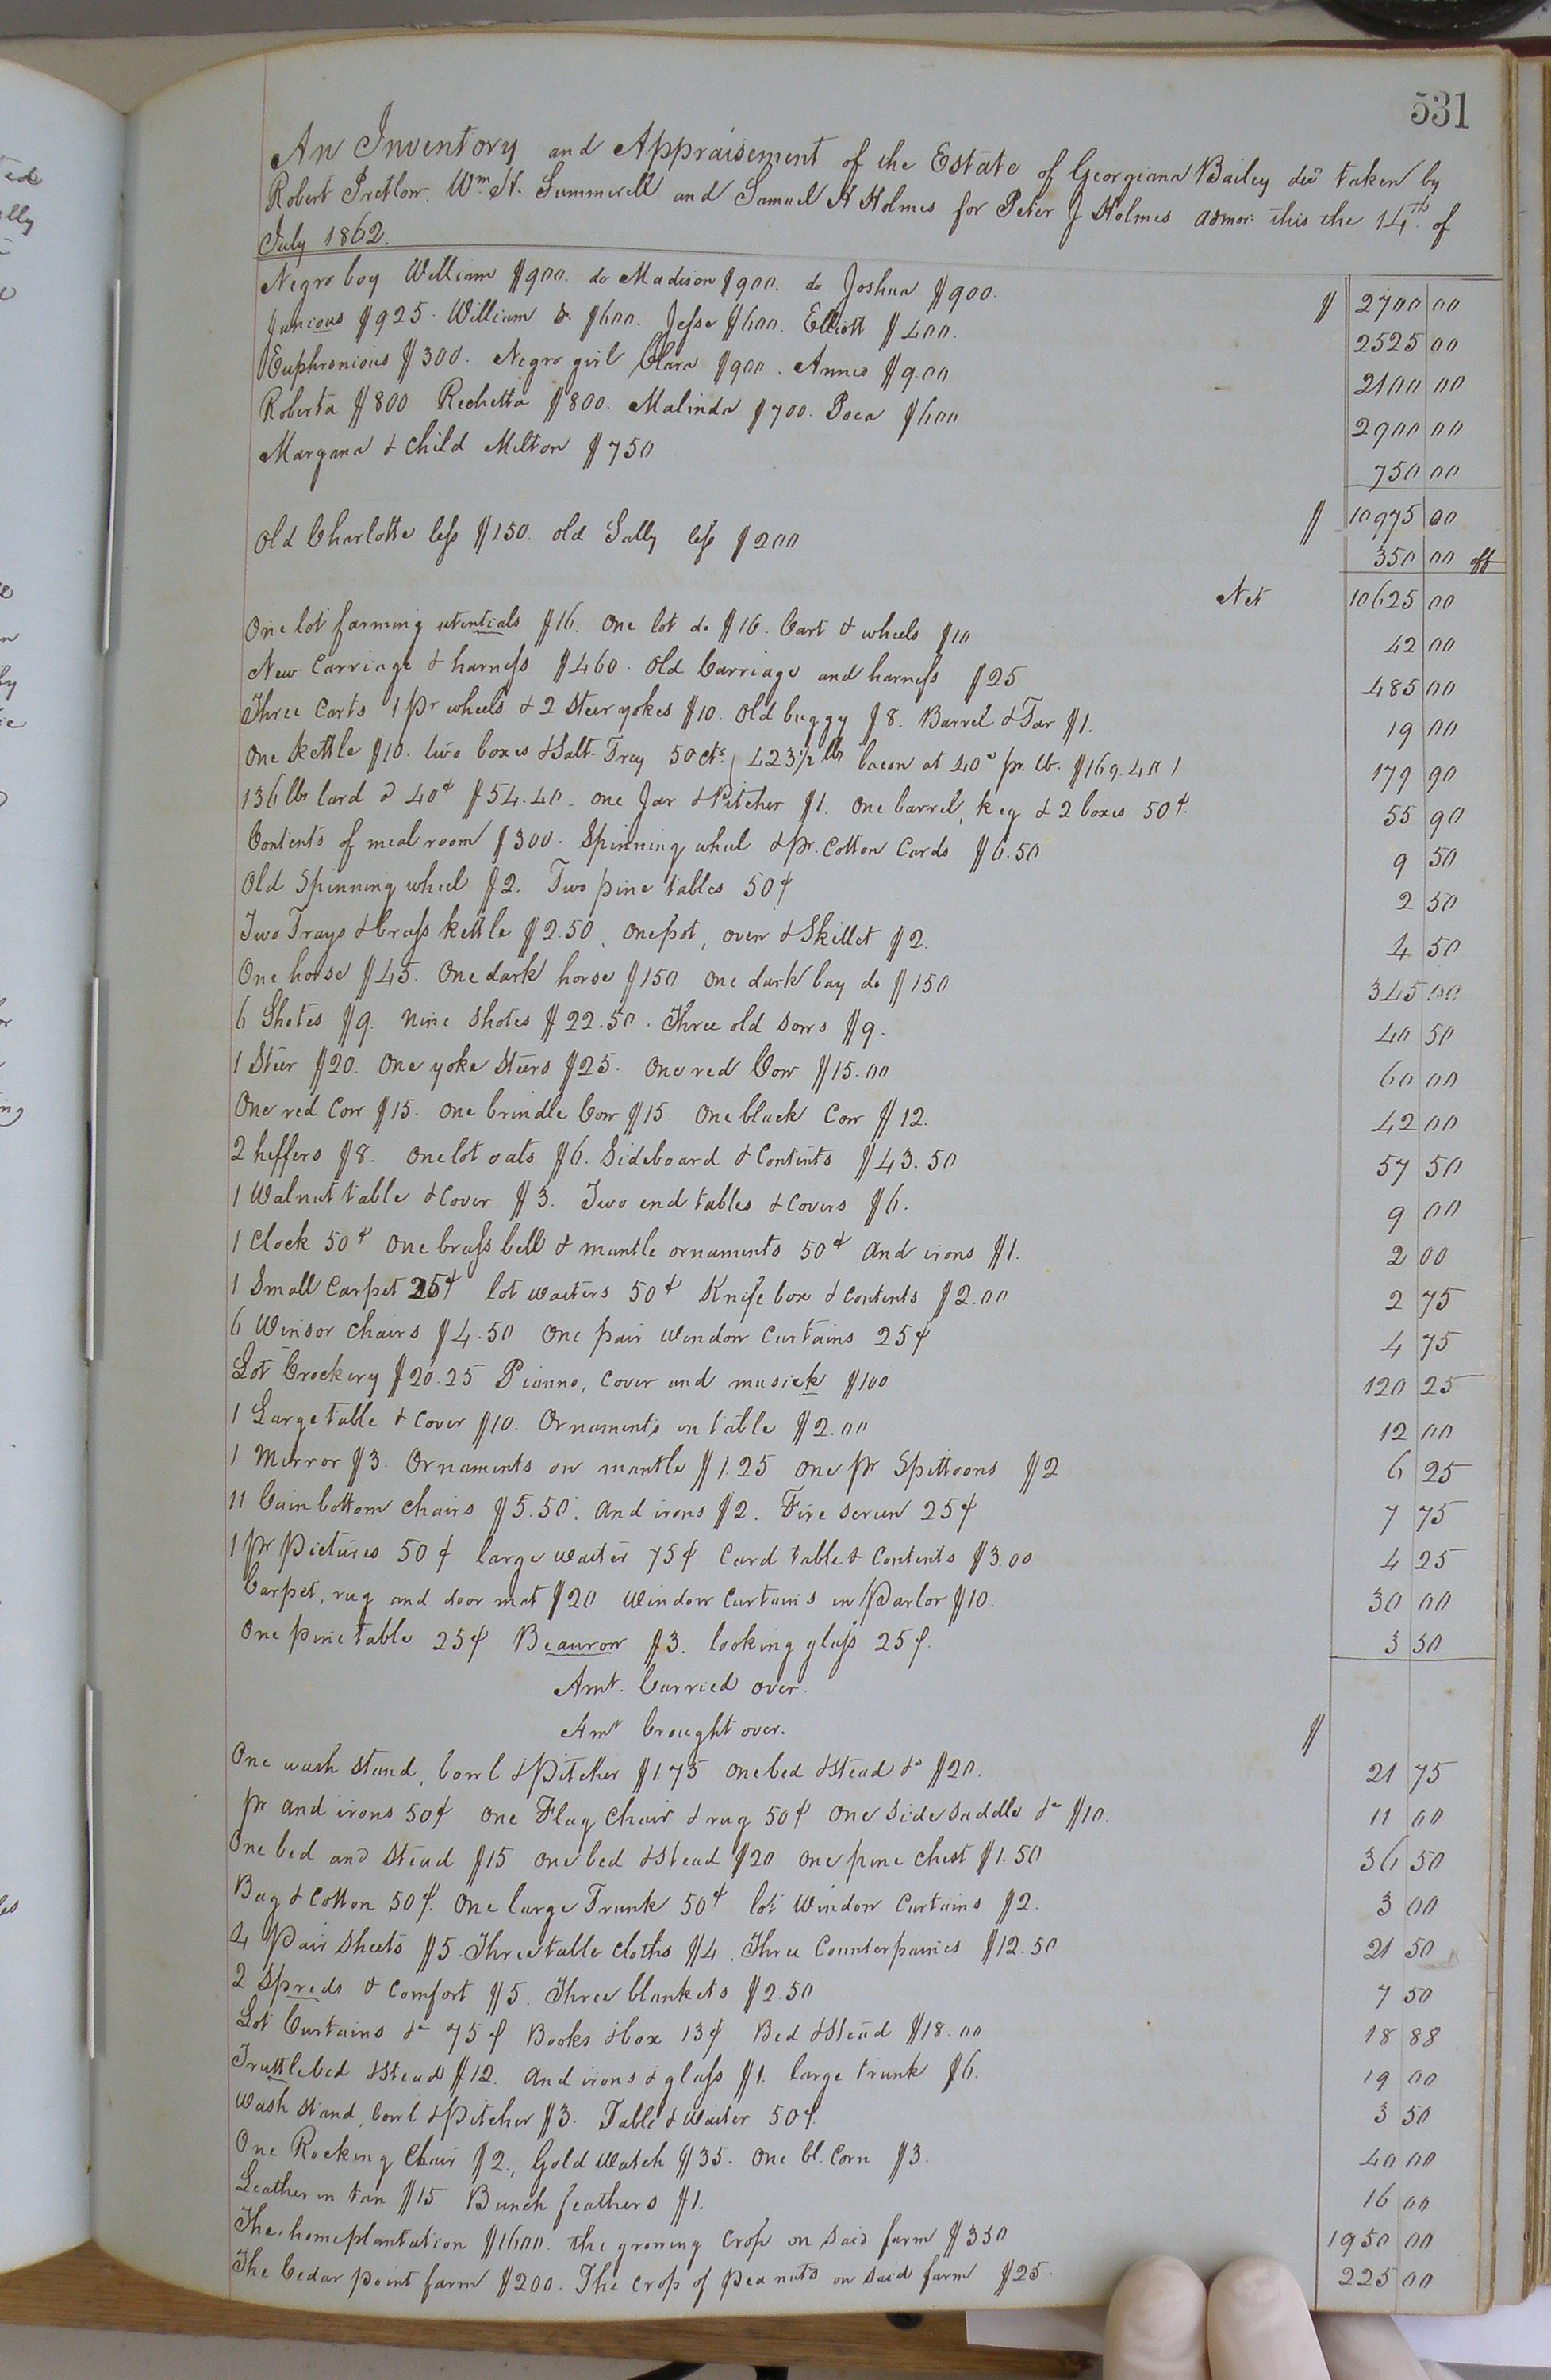 531
An Inventory and Appraisement of the Estate of Georgiana Bailey decd taken by
Robert Pretlow. Wm H. Summerell and Samuel H Holmes for Peter J Holmes admor: this the 14th of
July 1862.
Negro boy William $900. do Madison $900. do Joshua $900. $ 2700 00
Junious $925. William S. $600. Jesse $600. Elliott $400. 2525 00
Euphronious $300. Negro girl Clara $900. Annes $9.00 2100 00
Roberta $800 Rechetta $800. Malinda $700. Poca $600 2900 00
Margana & child Milton $750 750 00
$ 10975 00
Old Charlotte less $150. old Sally less $200 350 00 off
Net 10625 00
One lot farming utentials $16. One lot do $16. Cart & wheels $10 42 00
New Carriage & harness $460. Old Carriage and harness $25 485 00
Three Carts 1 pr wheels & 2 Steer yokes $10. Old buggy $8. Barrel & Tar $1. 19 00
One kettle $10. two boxes & Salt-Tray 50 cts. 423 1/2 lbs bacon at 40c pr. lb. $169.40 179 90
136 lbs lard @ 40¢ $54.40. One Jar & Pitcher $1. One barrel, keg & 2 boxes 50¢. 55 90
Contents of meal room $300. Spinning wheel & pr. Cotton Cards $6.50 9 50
Old Spinning wheel $2. Two pine tables 50¢ 2 50
Two Trays & brass kettle $2.50, one pot, oven & Skillet $2. 4 50
One horse $45. One dark horse $150 one dark bay do $150 345 00
6 Shotes $9. Nine Shotes $22.50. Three old Sows $9. 40 50
1 Steer $20. One yoke Steers $25. One red Cow $15.00 60 00
One red Cow $15. One brindle Cow $15. One black Cow $12. 42 00
2 heffers $8. One lot oats $6. Sideboard & Contents $43.50 57 50
1 Walnut table & Cover $3. Two end tables & Covers $6. 9 00
1 Clock 50¢ One brass bell & mantle ornaments 50¢ And irons $1. 2 00
1 Small Carpet 25¢ lot waiters 50¢ Knife box & contents $2.00 2 75
6 Winsor Chairs $4.50 One pair Window Curtains 25¢ 4 75
Lot Crockery $20.25 Pianno, Cover and musick $100 120 25
1 Large table & Cover $10. Ornaments on table $2.00 12 00
1 Mirror $3. Ornaments on mantle $1.25 One pr Spittoons $2 6 25
11 Cain bottom Chairs $5.50. And irons $2. Fire Screen 25¢ 7 75
1 Pr Pictures 50¢ large waiter 75¢ Card table & Contents $3.00 4 25
Carpet, rug and door mat $20 Window Curtains in Parlor $10. 30 00
One pine table 25¢ Beaurow $3. looking glass 25¢. 3 50
Amt. Carried over.
Amt brought over. $
One wash stand, bowl & Pitcher $1.75 One bed & stead &c $20. 21 75
pr and irons 50¢ One Flag Chair & rug 50¢ One Side Saddle &c $10. 11 00
One bed and Stead $15 One bed & Stead $20 One pine Chest $1.50 36 50
Bag & Cotton 50¢. One large Trunk 50¢ lot Window Curtains $2. 3 00
4 Pair Sheets $5. Three table Cloths $4. Three Counterpaines $12.50 21 50
2 Spreds & Comfort $5. Three blankets $2.50 7 50
Lot Curtains &c 75¢ Books & box 13¢ Bed & stead $18.00 18 88
Truttlebed & Stead $12. And irons & glass $1. large trunk $6. 19 00
Wash Stand, bowl & Pitcher $3. Table & Waiter 50¢. 3 50
One Rocking Chair $2., Gold Watch $35. One bl. Corn $3. 40 00
Leather in tan $15 Bunch feathers $1. 16 00
The home plantation $1600. the growing Crop on said farm $350 1950 00
The Cedar point farm $200. The Crop of Pea nuts on said farm $25. 225 00